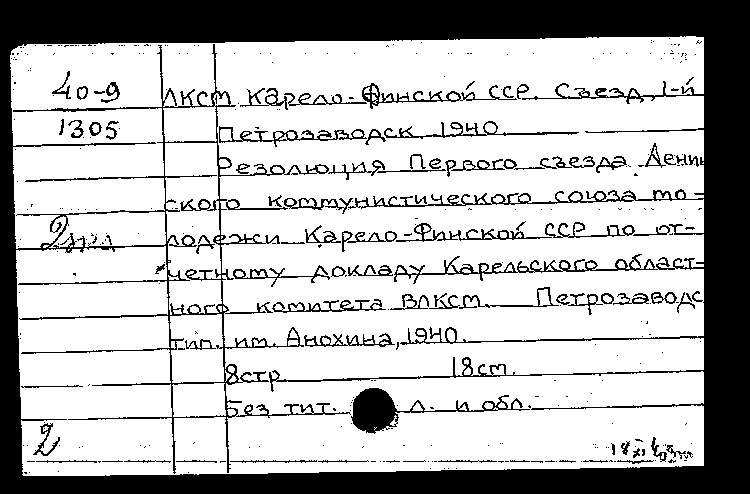 40-9 ЛКСМ Карело-Финской ССР. Съезд, 1-й
1305 Петрозаводск, 1940.
Резолюция Первого съезда Ленин
ского коммунистического союза мо-
2 лодежи Карело-Финской ССР по от-
четному докладу Карельского област-
ного комитета ВЛКСМ. Петрозаводс
тип. им. Анохина, 1940.
8стр. 18см.
Без тит. л. и обл.
2